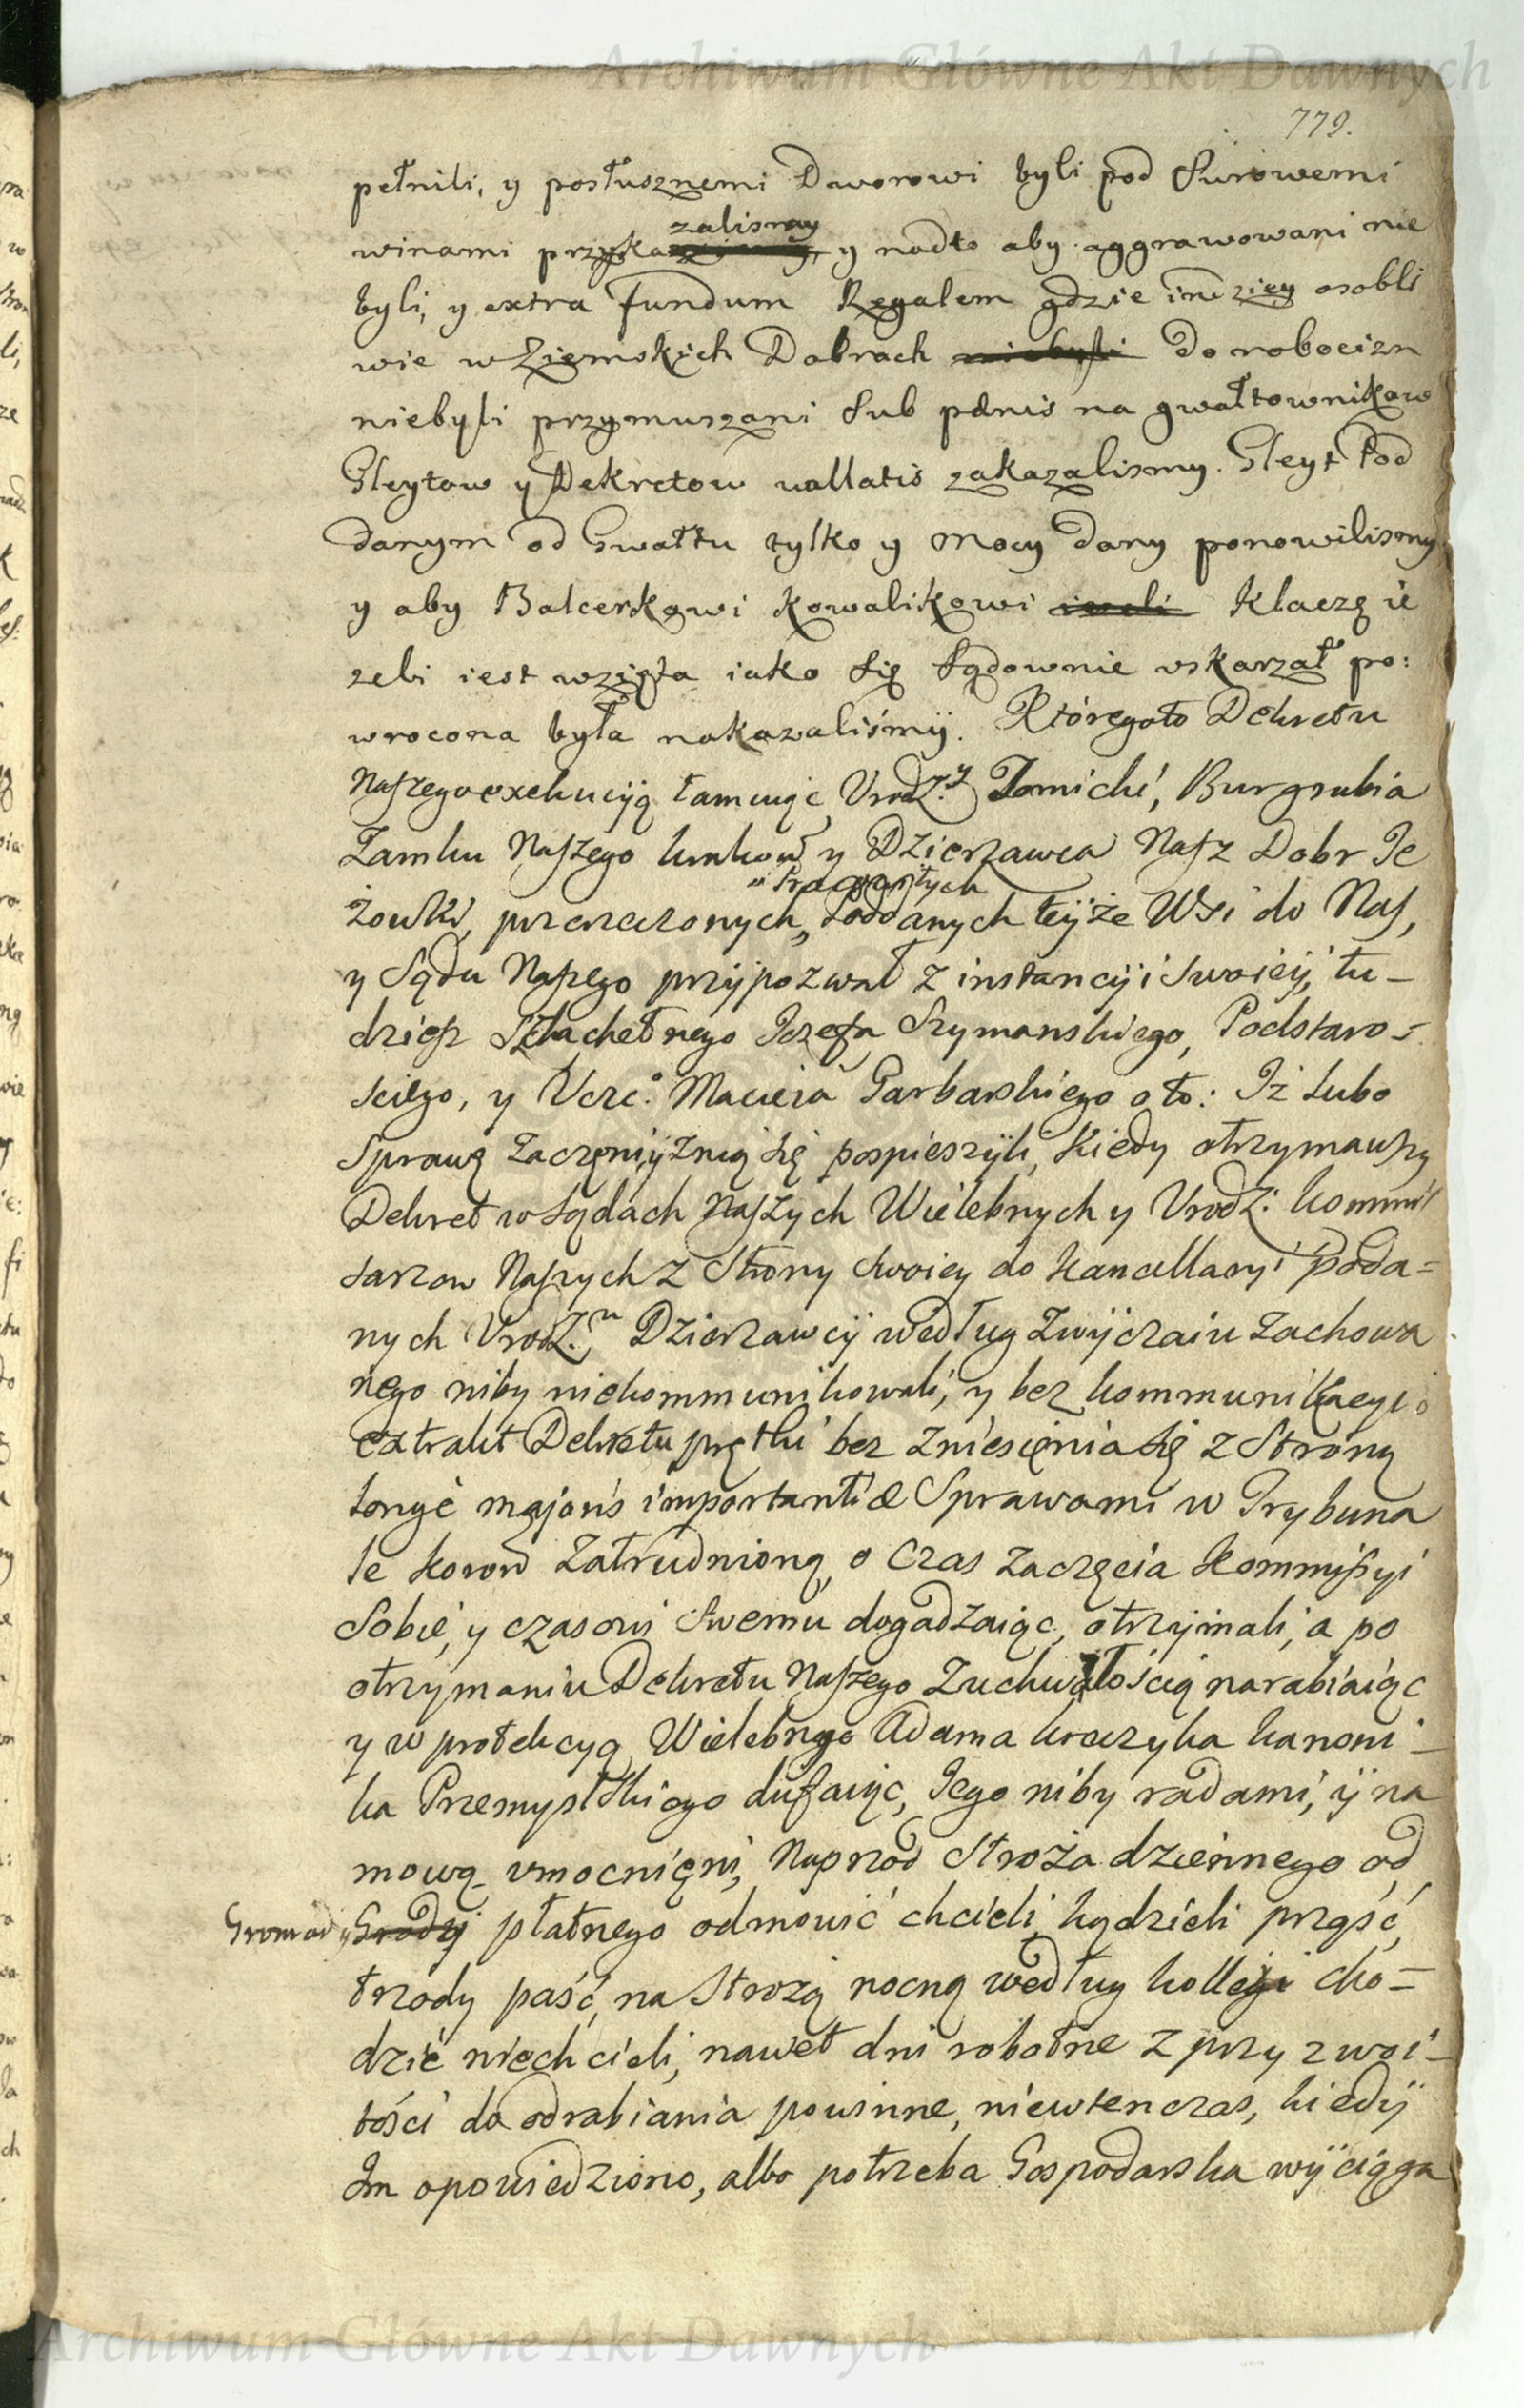 Archiwum Główne Akt Dawnych
779.
pełnili, y posłusznemi Dworowi byli pod Surowemi
zalismy
winami przyka y nadto aby aggrawowani nie
byli, y extra fundum Regalem gdzie indziey osobli
wie w Ziemskich Dobrach niebyli do robocizn
niebyli przymuszani Sub pænis na gwałtownikow
Gleytow y Dekretow vallatis zakazalismy. Gleyt Pod
danym od Gwałtu tylko y Mocy dany ponowilismy
y aby Balcerkowi Kowalikowi ieżeli Klaczę ie
żeli iest wzięta iako się Sądownie uskarzał po:
wrocona była nakazaliśmÿ. Któregoto Dekretu
Naszego exekucÿą łamiąc Vrodz.ʸ Tomicki, Burgrabia
Zamku Naszego krakow y Dzierzawca Nasz Dobr Je
Pracowitych
żowki, przerzeczonych, Poddanych teÿże Wsi do Nas,
y Sądu Naszego przÿpozwał z instancÿi Swoieÿ, tu-
dziesz Szlachetnego Jozefa Szymanskiego, Podstaro=
sciego, y Vczc.º Macieia Garbarskiego o to: Iż lubo
Sprawę Zaczęni, ÿ Znią się pospieszÿli, Kiedy otrzymawszy
Dekret w Sądach Naszych Wielebnych y Vrodz: kommis
sarzow Naszych z Strony Swoiey do Kancellaryi Poda=
nych Vrodz.ᵘ Dzierzawcÿ według Zwÿczaiu Zachowa
nego niby niekommunikowali, y bez kommunikacyi
extralit Dekretu prętki bez Zniesienia się z Stroną
tonże majoris importantiæ Sprawami w Trybuna
le koron Zatrudnioną, o Czas Zaczęcia Kommissyi
Sobie, y czasowi Swemu dogadzaiąc, otrzÿmali, a po
otrzymaniu Dekretu Naszego Zuchwałością narabiaiąc
y w protekcyą Wielebnego Adama kraczyka kanoni-
ka Przemyslskiego dufaiąc, Jego niby radami, ÿ na
mową vmocnięni, Naprzod Stroża dziennego od
Gromady Grodzy płatnego odmowić chcieli, kądzieli prząść,
trzody paść, na Strożą nocną według kolleji cho=
dzić niechcieli, nawet dni robotne z przyzwoi-
tości do odrabiania powinne, niewtenczas, kiedÿ
Im opowiedziono, albo potrzeba Gospodarska wÿciąga
Archiwum Główne Akt Dawnych